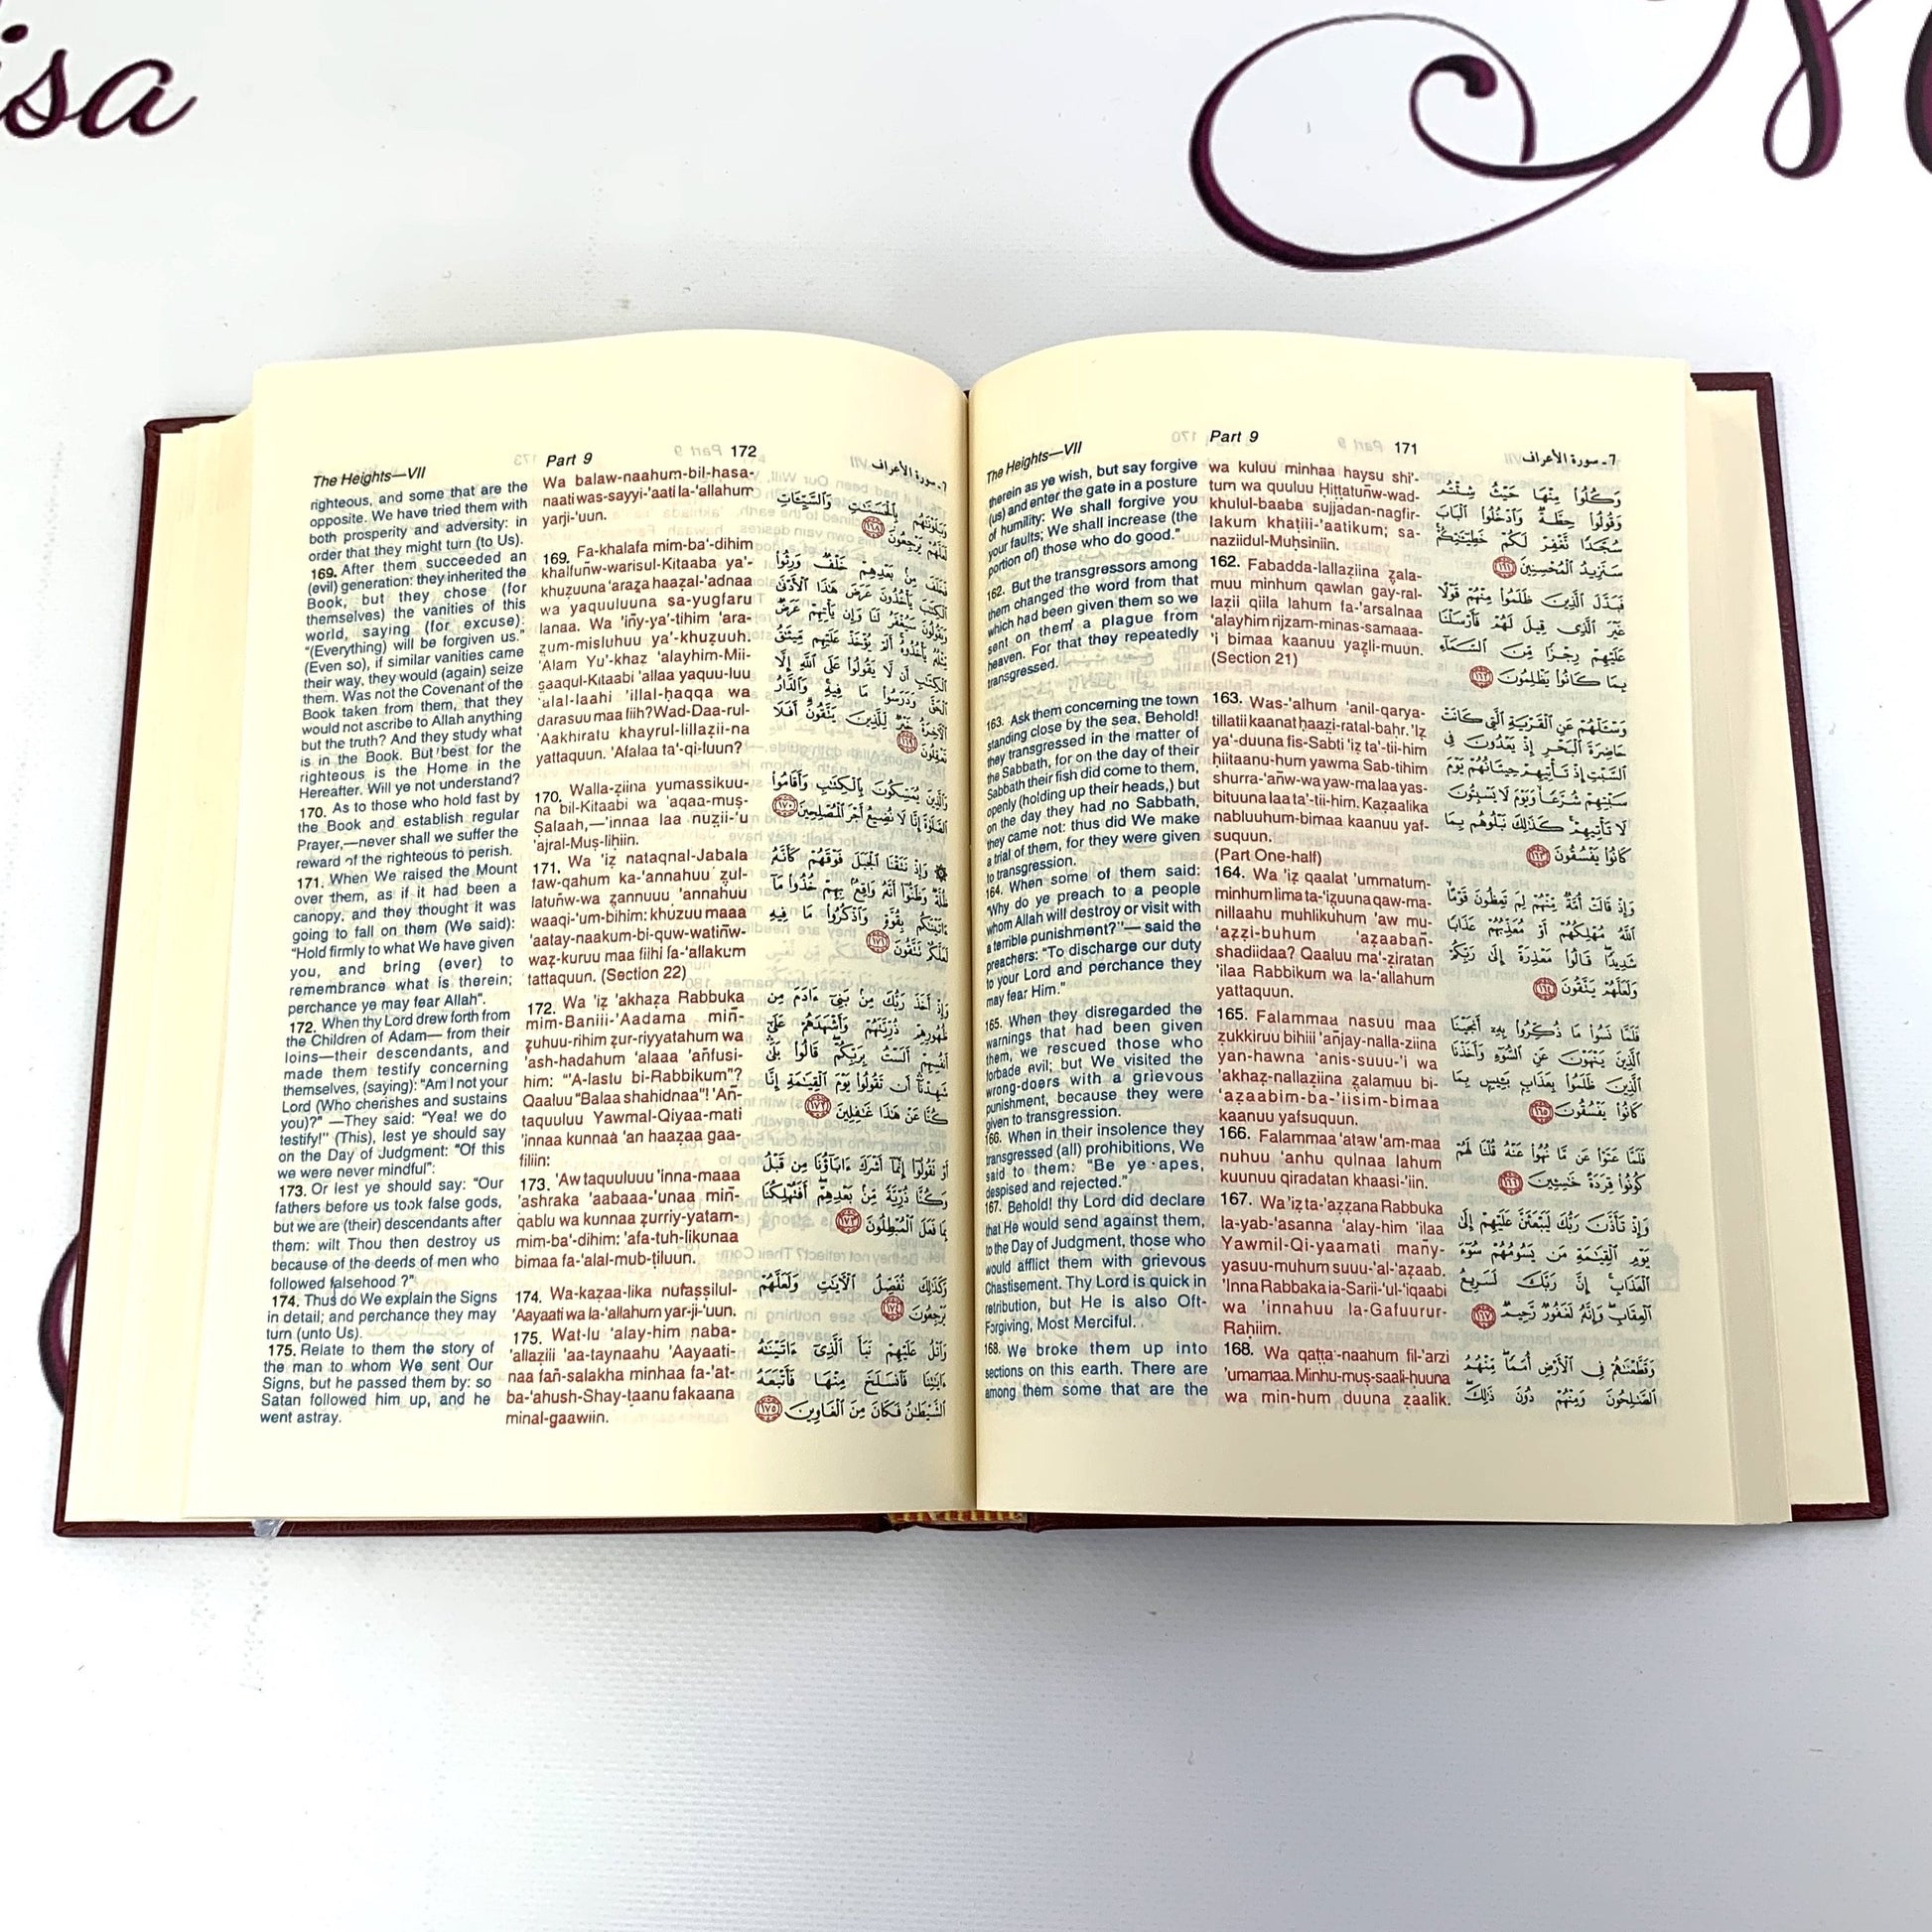 isa
The Heights—VII
Part 9
171
7ـ سورة الأعراف
therein as ye wish, but say forgive
(us) and enter the gate in a posture
of humility: We shall forgive you
your faults; We shall increase (the
portion of) those who do good."
162. But the transgressors among
them changed the word from that
which had been given them so we
sent on them a plague from
heaven. For that they repeatedly
transgressed.
163. Ask them concerning the town
standing close by the sea. Behold!
they transgressed in the matter of
the Sabbath, for on the day of their
Sabbath their fish did come to them,
openly (holding up their heads,) but
on the day they had no Sabbath,
they came not: thus did We make
a trial of them, for they were given
to transgression.
164. When some of them said:
"Why do ye preach to a people
whom Allah will destroy or visit with
a terrible punishment?"— said the
preachers: "To discharge our duty
to your Lord and perchance they
may fear Him."
165. When they disregarded the
warnings that had been given
them, we rescued those who
forbade evil; but We visited the
wrong-doers with a grievous
punishment, because they were
given to transgression.
166. When in their insolence they
transgressed (all) prohibitions, We
said to them: "Be ye apes,
despised and rejected."
167. Behold! thy Lord did declare
that He would send against them,
to the Day of Judgment, those who
would afflict them with grievous
Chastisement. Thy Lord is quick in
retribution, but He is also Oft-
Forgiving, Most Merciful.
168. We broke them up into
sections on this earth. There are
among them some that are the
wa kuluu minhaa haysu shi'-
tum wa quuluu Ḥiṭṭatuñw-wad-
khulul-baaba sujjadan-nagfir-
lakum khaṭiii-'aatikum; sa-
naziidul-Muḥsiniin.
162. Fabadda-lallaẓiina ẓala-
muu minhum qawlan gay-ral-
laẓii qiila lahum fa-'arsalnaa
'alayhim rijzam-minas-samaaa-
'i bimaa kaanuu yaẓli-muun.
(Section 21)
163. Was-'alhum 'anil-qarya-
tillatii kaanat ḥaaẓi-ratal-baḥr. 'Iẓ
ya'-duuna fis-Sabti 'iẓ ta'-tii-him
ḥiitaanu-hum yawma Sab-tihim
shurra-'añw-wa yaw-ma laa yas-
bituuna laa ta'-tii-him. Kaẓaalika
nabluuhum-bimaa kaanuu yaf-
suquun.
(Part One-half)
164. Wa 'iẓ qaalat 'ummatum-
minhum lima ta-'iẓuuna qaw-ma-
nillaahu muhlikuhum 'aw mu-
'aẓẓi-buhum 'aẓaabañ-
shadiidaa? Qaaluu ma'-ẓiratan
'ilaa Rabbikum wa la-'allahum
yattaquun.
165. Falammaa nasuu maa
ẓukkiruu bihiii 'añjay-nalla-ziina
yan-hawna 'anis-suuu-'i wa
'akhaẓ-nallaẓiina ẓalamuu bi-
'aẓaabim-ba-'iisim-bimaa
kaanuu yafsuquun.
166. Falammaa 'ataw 'am-maa
nuhuu 'anhu qulnaa lahum
kuunuu qiradatan khaasi-'iin.
167. Wa 'iẓ ta-'aẓẓana Rabbuka
la-yab-'asanna 'alay-him 'ilaa
Yawmil-Qi-yaamati mañy-
yasuu-muhum suuu-'al-'aẓaab.
'Inna Rabbaka la-Sarii-'ul-'iqaabi
wa 'innahuu la-Gafuurur-
Raḥiim.
168. Wa qaṭṭa'-naahum fil-'arzi
'umamaa. Minhu-muṣ-saali-ḥuuna
wa min-hum duuna ẓaalik.
وَكُلُوا۟ مِنْهَا حَيْثُ شِئْتُمْ
وَقُولُوا۟ حِطَّةٌ وَٱدْخُلُوا۟ ٱلْبَابَ
سُجَّدًا نَّغْفِرْ لَكُمْ خَطِيٓـَٰٔتِكُمْ
سَنَزِيدُ ٱلْمُحْسِنِينَ ١٦١
فَبَدَّلَ ٱلَّذِينَ ظَلَمُوا۟ مِنْهُمْ قَوْلًا
غَيْرَ ٱلَّذِى قِيلَ لَهُمْ فَأَرْسَلْنَا
عَلَيْهِمْ رِجْزًا مِّنَ ٱلسَّمَآءِ
بِمَا كَانُوا۟ يَظْلِمُونَ ١٦٢
وَسْـَٔلْهُمْ عَنِ ٱلْقَرْيَةِ ٱلَّتِى كَانَتْ
حَاضِرَةَ ٱلْبَحْرِ إِذْ يَعْدُونَ فِى
ٱلسَّبْتِ إِذْ تَأْتِيهِمْ حِيتَانُهُمْ يَوْمَ
سَبْتِهِمْ شُرَّعًا وَيَوْمَ لَا يَسْبِتُونَ
لَا تَأْتِيهِمْ كَذَٰلِكَ نَبْلُوهُم بِمَا
كَانُوا۟ يَفْسُقُونَ ١٦٣
وَإِذْ قَالَتْ أُمَّةٌ مِّنْهُمْ لِمَ تَعِظُونَ قَوْمًا
ٱللَّهُ مُهْلِكُهُمْ أَوْ مُعَذِّبُهُمْ عَذَابًا
شَدِيدًا قَالُوا۟ مَعْذِرَةً إِلَىٰ رَبِّكُمْ
وَلَعَلَّهُمْ يَتَّقُونَ ١٦٤
فَلَمَّا نَسُوا۟ مَا ذُكِّرُوا۟ بِهِۦٓ أَنجَيْنَا
ٱلَّذِينَ يَنْهَوْنَ عَنِ ٱلسُّوٓءِ وَأَخَذْنَا
ٱلَّذِينَ ظَلَمُوا۟ بِعَذَابٍۭ بَـِٔيسٍۭ بِمَا
كَانُوا۟ يَفْسُقُونَ ١٦٥
فَلَمَّا عَتَوْا۟ عَن مَّا نُهُوا۟ عَنْهُ قُلْنَا لَهُمْ
كُونُوا۟ قِرَدَةً خَٰسِـِٔينَ ١٦٦
وَإِذْ تَأَذَّنَ رَبُّكَ لَيَبْعَثَنَّ عَلَيْهِمْ إِلَىٰ
يَوْمِ ٱلْقِيَٰمَةِ مَن يَسُومُهُمْ سُوٓءَ
ٱلْعَذَابِ إِنَّ رَبَّكَ لَسَرِيعُ
ٱلْعِقَابِ وَإِنَّهُۥ لَغَفُورٌ رَّحِيمٌ ١٦٧
وَقَطَّعْنَٰهُمْ فِى ٱلْأَرْضِ أُمَمًا مِّنْهُمُ
ٱلصَّٰلِحُونَ وَمِنْهُمْ دُونَ ذَٰلِكَ
The Heights—VII
Part 9
172
7ـ سورة الأعراف
righteous, and some that are the
opposite. We have tried them with
both prosperity and adversity: in
order that they might turn (to Us).
169. After them succeeded an
(evil) generation: they inherited the
Book, but they chose (for
themselves) the vanities of this
world, saying (for excuse):
"(Everything) will be forgiven us."
(Even so), if similar vanities came
their way, they would (again) seize
them. Was not the Covenant of the
Book taken from them, that they
would not ascribe to Allah anything
but the truth? And they study what
is in the Book. But best for the
righteous is the Home in the
Hereafter. Will ye not understand?
170. As to those who hold fast by
the Book and establish regular
Prayer,—never shall we suffer the
reward of the righteous to perish.
171. When We raised the Mount
over them, as if it had been a
canopy, and they thought it was
going to fall on them (We said):
"Hold firmly to what We have given
you, and bring (ever) to
remembrance what is therein;
perchance ye may fear Allah".
172. When thy Lord drew forth from
the Children of Adam— from their
loins—their descendants, and
made them testify concerning
themselves, (saying): "Am I not your
Lord (Who cherishes and sustains
you)?" —They said: "Yea! we do
testify!" (This), lest ye should say
on the Day of Judgment: "Of this
we were never mindful":
173. Or lest ye should say: "Our
fathers before us took false gods,
but we are (their) descendants after
them: wilt Thou then destroy us
because of the deeds of men who
followed falsehood ?"
174. Thus do We explain the Signs
in detail; and perchance they may
turn (unto Us).
175. Relate to them the story of
the man to whom We sent Our
Signs, but he passed them by: so
Satan followed him up, and he
went astray.
Wa balaw-naahum-bil-hasa-
naati was-sayyi-'aati la-'allahum
yarji-'uun.
169. Fa-khalafa mim-ba'-dihim
khalfuñw-warisul-Kitaaba ya'-
khuẓuuna 'araẓa haaẓal-'adnaa
wa yaquuluuna sa-yugfaru
lanaa. Wa 'iñy-ya'-tihim 'ara-
ẓum-misluhuu ya'-khuẓuuh.
'Alam Yu'-khaz 'alayhim-Mii-
ṣaaqul-Kitaabi 'allaa yaquu-luu
'alal-laahi 'illal-ḥaqqa wa
darasuu maa fiih? Wad-Daa-rul-
'Aakhiratu khayrul-lillaẓii-na
yattaquun. 'Afalaa ta'-qi-luun?
170. Walla-ẓiina yumassikuu-
na bil-Kitaabi wa 'aqaa-muṣ-
Ṣalaah,—'innaa laa nuẓii-'u
'ajral-Muṣ-liḥiin.
171. Wa 'iẓ nataqnal-Jabala
faw-qahum ka-'annahuu ẓul-
latuñw-wa ẓannuuu 'annahuu
waaqi-'um-bihim: khuẓuu maaa
'aatay-naakum-bi-quw-watiñw-
waẓ-kuruu maa fiihi la-'allakum
tattaquun. (Section 22)
172. Wa 'iẓ 'akhaẓa Rabbuka
mim-Baniii-'Aadama miñ-
ẓuhuu-rihim ẓur-riyyatahum wa
'ash-hadahum 'alaaa 'añfusi-
him: "'A-lastu bi-Rabbikum"?
Qaaluu "Balaa shahidnaa"! 'Añ-
taquuluu Yawmal-Qiyaa-mati
'innaa kunnaa 'an haaẓaa gaa-
filiin:
173. 'Aw taquuluuu 'inna-maaa
'ashraka 'aabaaa-'unaa miñ-
qablu wa kunnaa ẓurriy-yatam-
mim-ba'-dihim: 'afa-tuh-likunaa
bimaa fa-'alal-mub-ṭiluun.
174. Wa-kaẓaa-lika nufaṣṣilul-
'Aayaati wa la-'allahum yar-ji-'uun.
175. Wat-lu 'alay-him naba-
'allaẓiii 'aa-taynaahu 'Aayaati-
naa fañ-salakha minhaa fa-'at-
ba-'ahush-Shay-ṭaanu fakaana
minal-gaawiin.
وَبَلَوْنَٰهُم بِٱلْحَسَنَٰتِ وَٱلسَّيِّـَٔاتِ
لَعَلَّهُمْ يَرْجِعُونَ ١٦٨
فَخَلَفَ مِنۢ بَعْدِهِمْ خَلْفٌ وَرِثُوا۟
ٱلْكِتَٰبَ يَأْخُذُونَ عَرَضَ هَٰذَا ٱلْأَدْنَىٰ
وَيَقُولُونَ سَيُغْفَرُ لَنَا وَإِن يَأْتِهِمْ عَرَضٌ
مِّثْلُهُۥ يَأْخُذُوهُ أَلَمْ يُؤْخَذْ عَلَيْهِم مِّيثَٰقُ
ٱلْكِتَٰبِ أَن لَّا يَقُولُوا۟ عَلَى ٱللَّهِ إِلَّا
ٱلْحَقَّ وَدَرَسُوا۟ مَا فِيهِ وَٱلدَّارُ
ٱلْـَٔاخِرَةُ خَيْرٌ لِّلَّذِينَ يَتَّقُونَ أَفَلَا
تَعْقِلُونَ ١٦٩
وَٱلَّذِينَ يُمَسِّكُونَ بِٱلْكِتَٰبِ وَأَقَامُوا۟
ٱلصَّلَوٰةَ إِنَّا لَا نُضِيعُ أَجْرَ ٱلْمُصْلِحِينَ ١٧٠
۞ وَإِذْ نَتَقْنَا ٱلْجَبَلَ فَوْقَهُمْ كَأَنَّهُۥ
ظُلَّةٌ وَظَنُّوٓا۟ أَنَّهُۥ وَاقِعٌۢ بِهِمْ خُذُوا۟ مَآ
ءَاتَيْنَٰكُم بِقُوَّةٍ وَٱذْكُرُوا۟ مَا فِيهِ
لَعَلَّكُمْ تَتَّقُونَ ١٧١
وَإِذْ أَخَذَ رَبُّكَ مِنۢ بَنِىٓ ءَادَمَ مِن
ظُهُورِهِمْ ذُرِّيَّتَهُمْ وَأَشْهَدَهُمْ عَلَىٰٓ
أَنفُسِهِمْ أَلَسْتُ بِرَبِّكُمْ قَالُوا۟ بَلَىٰ
شَهِدْنَآ أَن تَقُولُوا۟ يَوْمَ ٱلْقِيَٰمَةِ إِنَّا
كُنَّا عَنْ هَٰذَا غَٰفِلِينَ ١٧٢
أَوْ تَقُولُوٓا۟ إِنَّمَآ أَشْرَكَ ءَابَآؤُنَا مِن قَبْلُ
وَكُنَّا ذُرِّيَّةً مِّنۢ بَعْدِهِمْ أَفَتُهْلِكُنَا
بِمَا فَعَلَ ٱلْمُبْطِلُونَ ١٧٣
وَكَذَٰلِكَ نُفَصِّلُ ٱلْـَٔايَٰتِ وَلَعَلَّهُمْ
يَرْجِعُونَ ١٧٤
وَٱتْلُ عَلَيْهِمْ نَبَأَ ٱلَّذِىٓ ءَاتَيْنَٰهُ
ءَايَٰتِنَا فَٱنسَلَخَ مِنْهَا فَأَتْبَعَهُ
ٱلشَّيْطَٰنُ فَكَانَ مِنَ ٱلْغَاوِينَ ١٧٥